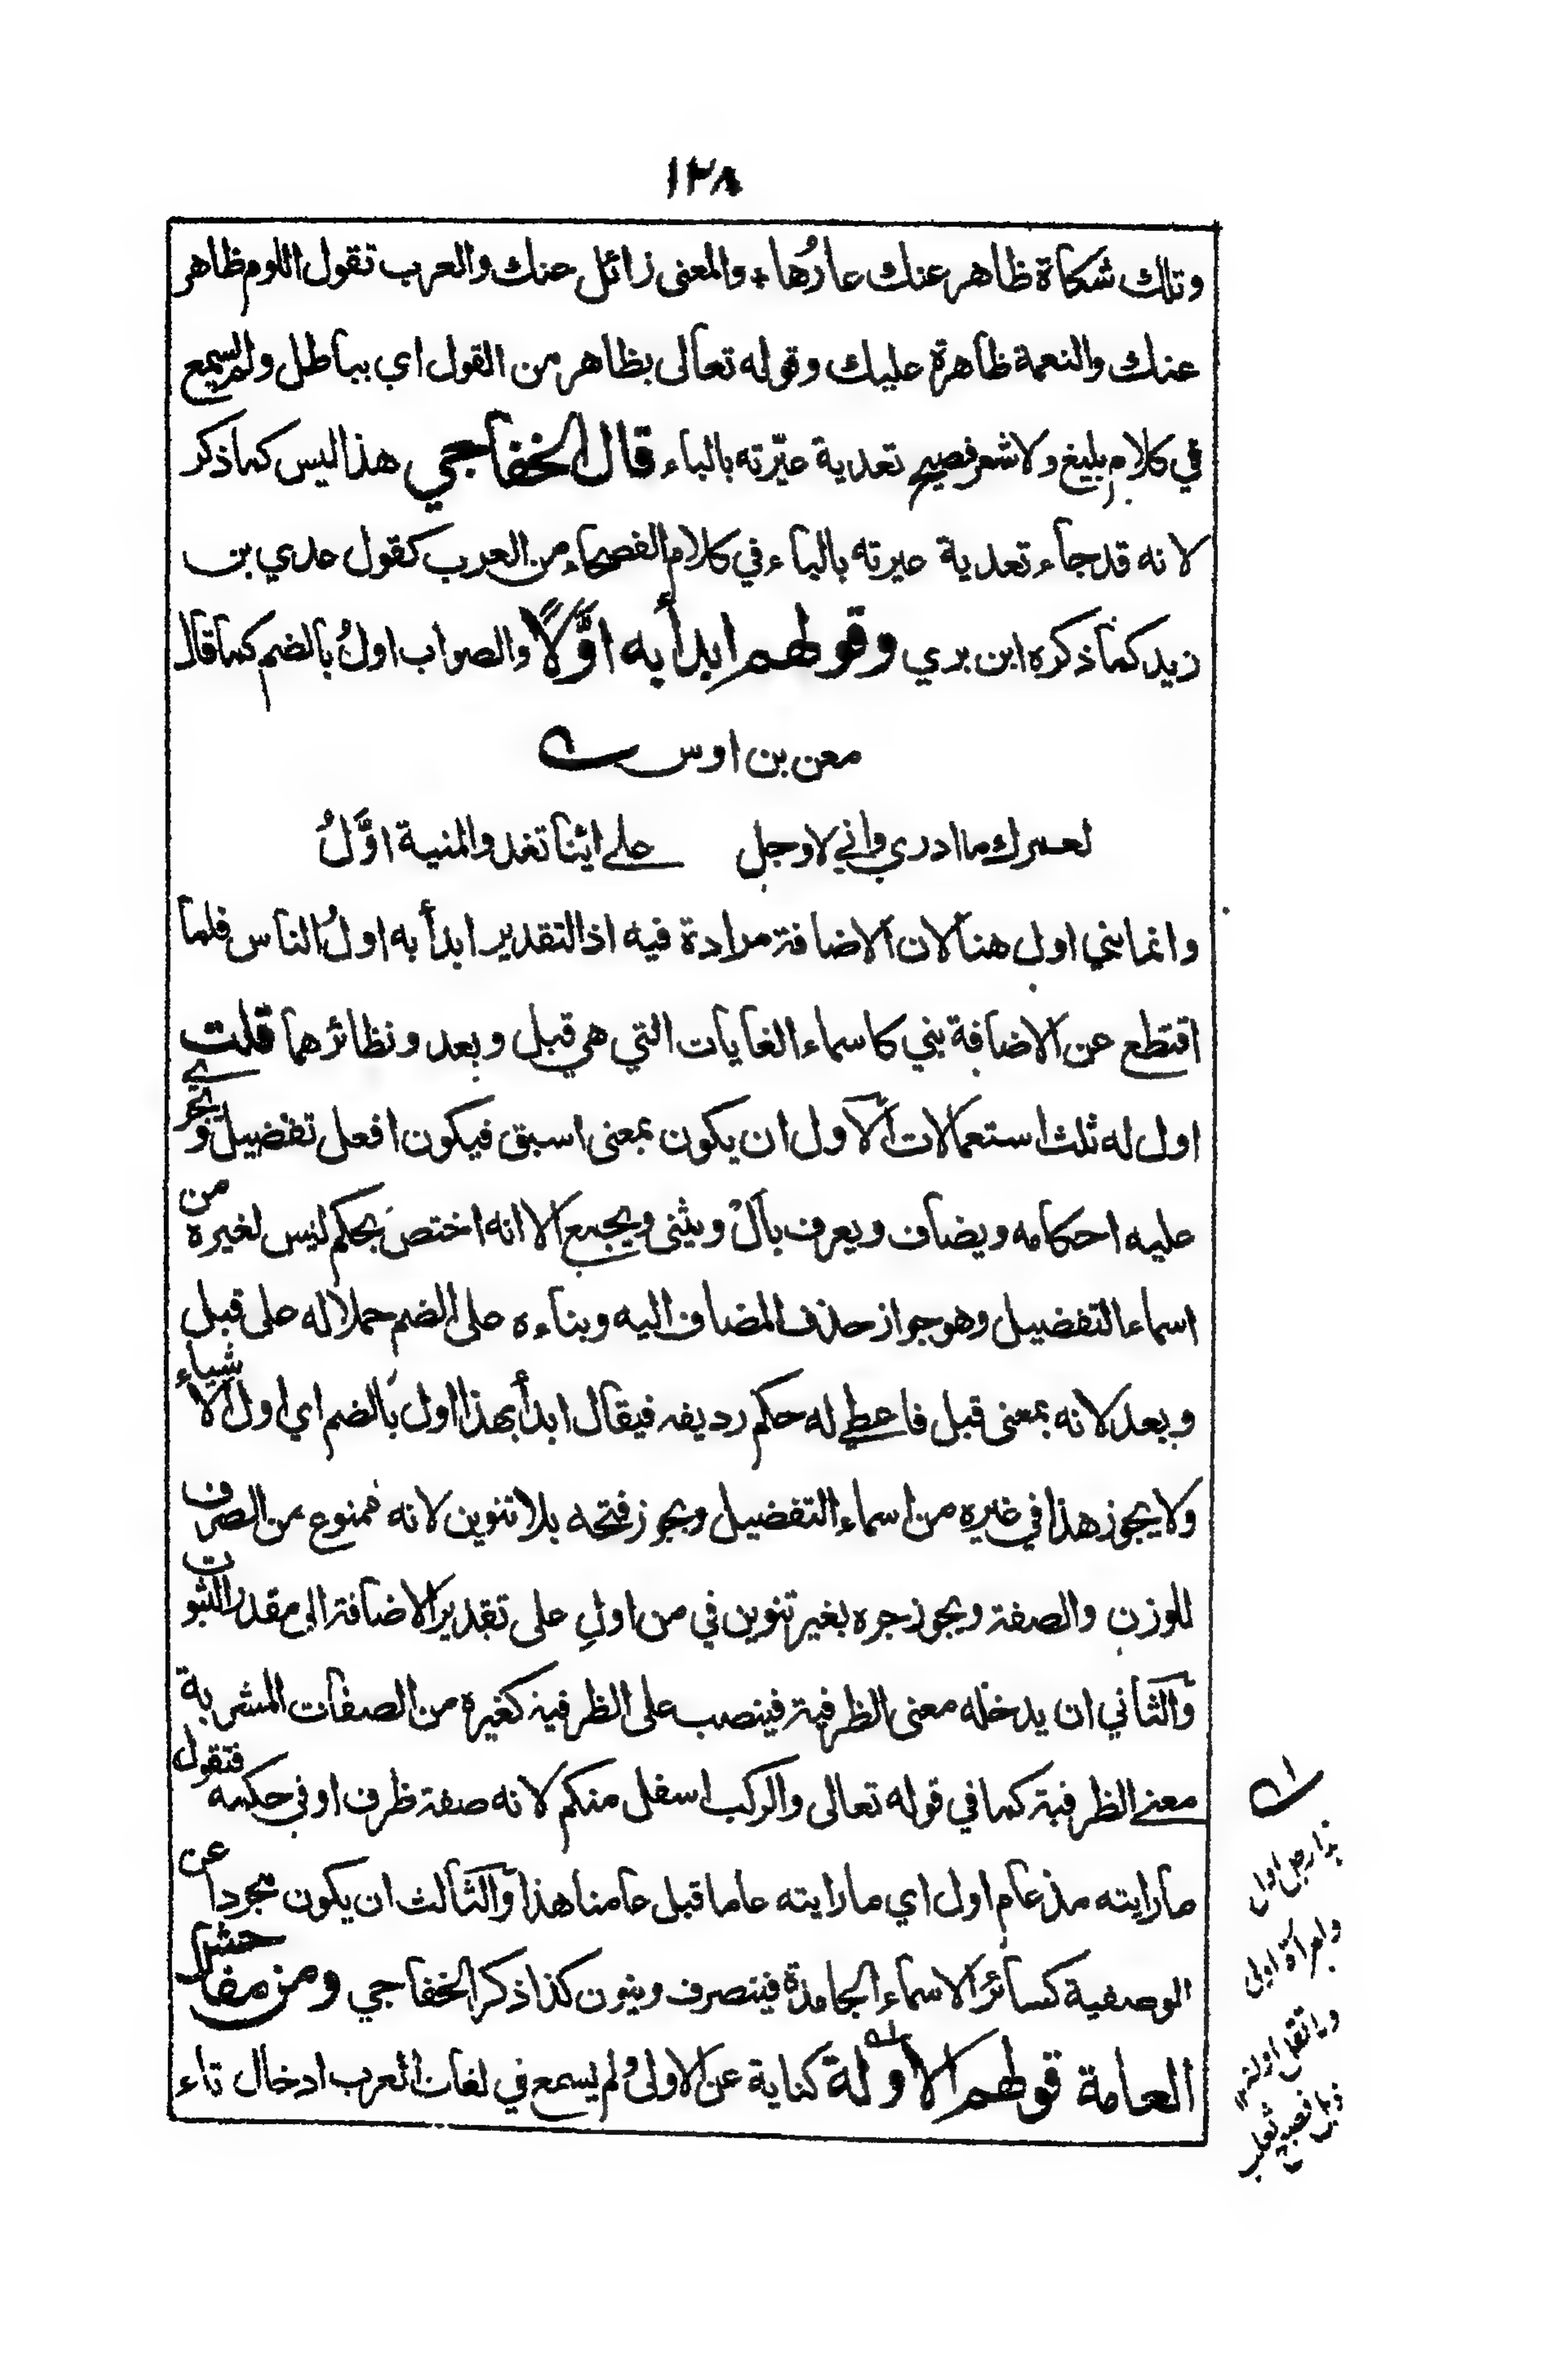 ١٢٨
وتلك شكاة ظاهر عنك عارُها والمعنى زائل عنك والعرب تقول اللوم ظاهر
عنك والنعمة ظاهرة عليك وقوله تعالى بظاهر من القول اي بباطل ولم يسمع
في كلام بليغ ولا شعر فصيح تعدية عيّرته بالباء قال الخفاجي هذا ليس كما ذكر
لانه قد جاء تعدية عيرته بالباء في كلام الفصحاء من العرب كقول عدي بن
زيد كما ذكره ابن بري وقولهم ابدأ به اوَّلًا والصواب اولُ بالضم كما قال
معن بن اوس
لعمرك ما ادري واني لاوجل على ايّنا تغدو المنية اوَّلُ
وانما بني اول هنا لان الاضافة مرادة فيه اذ التقدير ابدأ به اولُ الناس فلما
اقتطع عن الاضافة بني كاسماء الغايات التي هي قبل وبعد ونظائرهما قلت
اول له ثلث استعمالات الاول ان يكون بمعنى اسبق فيكون افعل تفضيل وتجري
عليه احكامه ويضاف ويعرف بألْ ويثنى ويجمع الا انه اختص بحكم ليس لغيره من
اسماء التفضيل وهو جواز حذف المضاف اليه وبناءه على الضم حملا له على قبل
وبعد لانه بمعنى قبل فاعطي له حكم رديفه فيقال ابدأ بهذا اول بالضم اي اول الاشياء
ولا يجوز هذا في غيره من اسماء التفضيل ويجوز فتحه بلا تنوين لانه ممنوع من الصرف
للوزن والصفة ويجوز جره بغير تنوين في من اولِ على تقدير الاضافة الى مقدر الثبوت
والثاني ان يدخله معنى الظرفية فينصب على الظرفية كغيره من الصفات المشربة
معنى الظرفية كما في قوله تعالى والركب اسفل منكم لانه صفة ظرف او في حكمه فتقول
ما رايته مذ عام اول اي ما رايته عاما قبل عامنا هذا والثالث ان يكون مجردا عن
الوصفية كسائر الاسماء الجامدة فينصرف وينون كذا ذكر الخفاجي ومن مفاحش
العامة قولهم الاولة كناية عن الاولى ولم يسمع في لغات العرب ادخال تاء
هذا رجل اول
وامرأة اولى
ولا تقل اولة